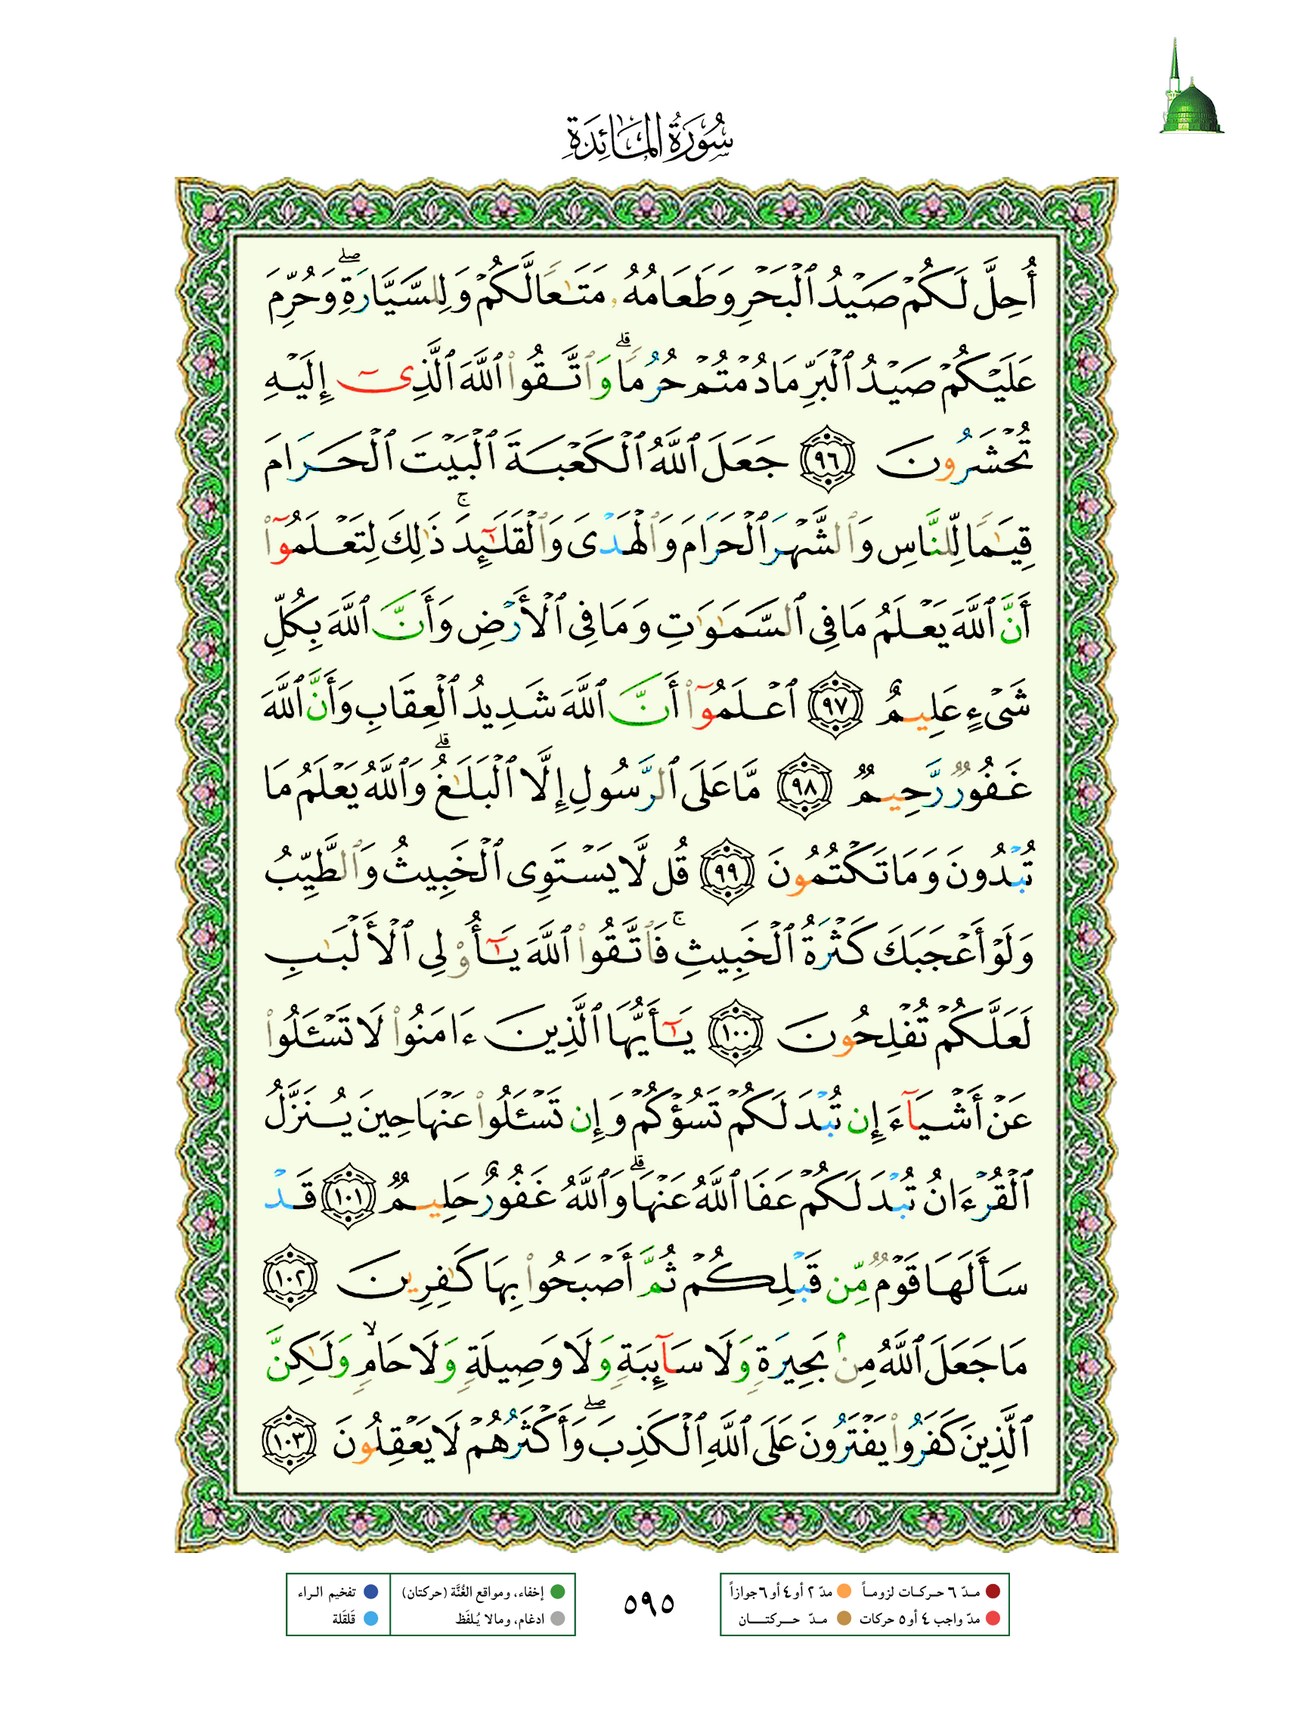 سُورَةُ المَائِدَة
أُحِلَّ لَكُمۡ صَيۡدُ ٱلۡبَحۡرِ وَطَعَامُهُۥ مَتَٰعٗا لَّكُمۡ وَلِلسَّيَّارَةِۖ وَحُرِّمَ
عَلَيۡكُمۡ صَيۡدُ ٱلۡبَرِّ مَا دُمۡتُمۡ حُرُمٗاۗ وَٱتَّقُواْ ٱللَّهَ ٱلَّذِيٓ إِلَيۡهِ
تُحۡشَرُونَ ٩٦ جَعَلَ ٱللَّهُ ٱلۡكَعۡبَةَ ٱلۡبَيۡتَ ٱلۡحَرَامَ
قِيَٰمٗا لِّلنَّاسِ وَٱلشَّهۡرَ ٱلۡحَرَامَ وَٱلۡهَدۡيَ وَٱلۡقَلَٰٓئِدَۚ ذَٰلِكَ لِتَعۡلَمُوٓاْ
أَنَّ ٱللَّهَ يَعۡلَمُ مَا فِي ٱلسَّمَٰوَٰتِ وَمَا فِي ٱلۡأَرۡضِ وَأَنَّ ٱللَّهَ بِكُلِّ
شَيۡءٍ عَلِيمٌ ٩٧ ٱعۡلَمُوٓاْ أَنَّ ٱللَّهَ شَدِيدُ ٱلۡعِقَابِ وَأَنَّ ٱللَّهَ
غَفُورٞ رَّحِيمٞ ٩٨ مَّا عَلَى ٱلرَّسُولِ إِلَّا ٱلۡبَلَٰغُۗ وَٱللَّهُ يَعۡلَمُ مَا
تُبۡدُونَ وَمَا تَكۡتُمُونَ ٩٩ قُل لَّا يَسۡتَوِي ٱلۡخَبِيثُ وَٱلطَّيِّبُ
وَلَوۡ أَعۡجَبَكَ كَثۡرَةُ ٱلۡخَبِيثِۚ فَٱتَّقُواْ ٱللَّهَ يَٰٓأُوْلِي ٱلۡأَلۡبَٰبِ
لَعَلَّكُمۡ تُفۡلِحُونَ ١٠٠ يَٰٓأَيُّهَا ٱلَّذِينَ ءَامَنُواْ لَا تَسۡـَٔلُواْ
عَنۡ أَشۡيَآءَ إِن تُبۡدَ لَكُمۡ تَسُؤۡكُمۡ وَإِن تَسۡـَٔلُواْ عَنۡهَا حِينَ يُنَزَّلُ
ٱلۡقُرۡءَانُ تُبۡدَ لَكُمۡ عَفَا ٱللَّهُ عَنۡهَاۗ وَٱللَّهُ غَفُورٌ حَلِيمٞ ١٠١ قَدۡ
سَأَلَهَا قَوۡمٞ مِّن قَبۡلِكُمۡ ثُمَّ أَصۡبَحُواْ بِهَا كَٰفِرِينَ ١٠٢
مَا جَعَلَ ٱللَّهُ مِنۢ بَحِيرَةٖ وَلَا سَآئِبَةٖ وَلَا وَصِيلَةٖ وَلَا حَامٖ وَلَٰكِنَّ
ٱلَّذِينَ كَفَرُواْ يَفۡتَرُونَ عَلَى ٱللَّهِ ٱلۡكَذِبَۖ وَأَكۡثَرُهُمۡ لَا يَعۡقِلُونَ ١٠٣
مـدّ ٦ حركات لزوماً مدّ ٢ أو ٤ أو ٦ جوازاً
مدّ واجب ٤ أو ٥ حركات مـدّ حـركتـان
٥٩٥
إخفاء، ومواقع الغُنَّة (حركتان) تفخيم الراء
ادغام، ومالا يُـلفَظ قَلقَلة